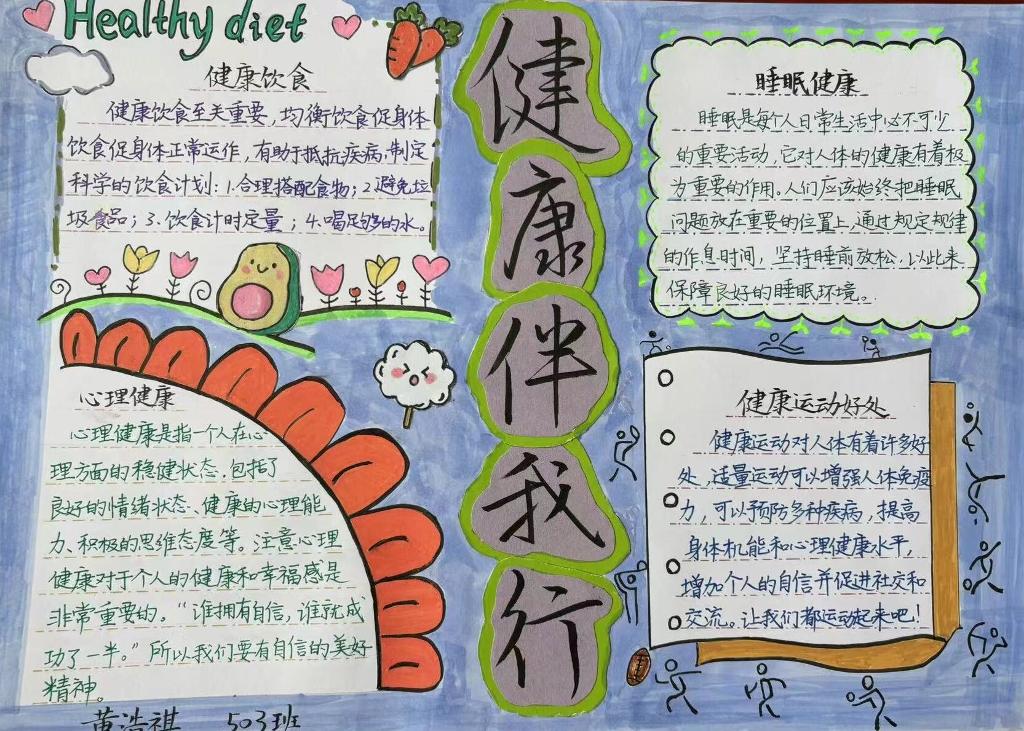 Healthy diet
健康饮食
健康饮食至关重要,均衡饮食促身体
饮食促身体正常运作,有助于抵抗疾病,制定
科学的饮食计划:1.合理搭配食物;2.避免垃
圾食品;3.饮食计时定量;4.喝足够的水。
心理健康
心理健康是指一个人在心
理方面的稳健状态,包括了
良好的情绪状态、健康的心理能
力、积极的思维态度等。注意心理
健康对于个人的健康和幸福感是
非常重要的。“谁拥有自信,谁就成
功了一半。”所以我们要有自信的美好
精神。
黄浩祺 503班
健
康
伴
我
行
睡眠健康
睡眠是每个人日常生活中必不可少
的重要活动,它对人体的健康有着极
为重要的作用。人们应该始终把睡眠
问题放在重要的位置上,通过规定规律
的作息时间,坚持睡前放松,以此来
保障良好的睡眠环境。
健康运动好处
健康运动对人体有着许多好
处,适量运动可以增强人体免疫
力,可以预防多种疾病,提高
身体机能和心理健康水平,
增加个人的自信并促进社交和
交流。让我们都运动起来吧!